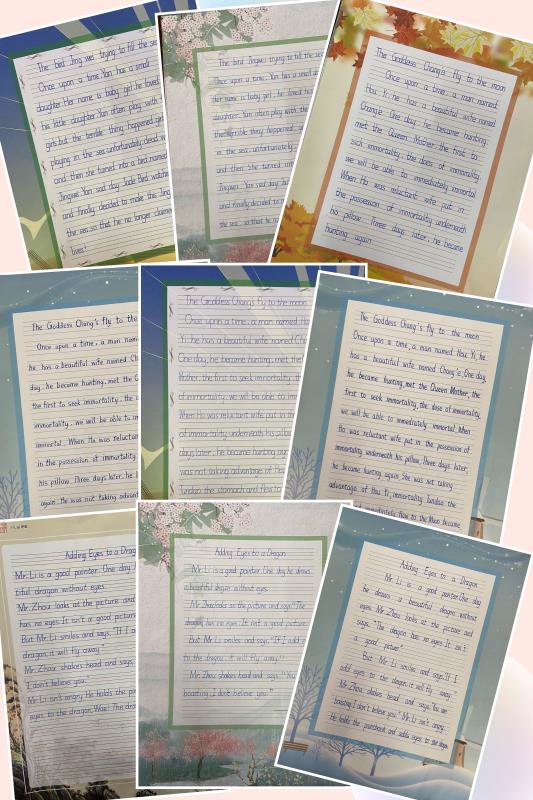 The bird Jing wei trying to fill the sea
Once upon a time. Yan has a small
daughter. Her name is baby girl. he loved
his little daughter. Yan often play with
girls. but the terrible thing happened. girl
playing in the sea. unfortunately dead
and then she turned into a bird named
Jingwei. Yan sad day Jade Bird
and finally decided to make the Jing
the sea. so that he no longer
lives!
The bird Jingwei trying to fill the sea
Once upon a time. Yan has a small
Her name is baby girl. he loved
daughter. Yan often play with the
the terrible thing happened.
in the sea. unfortunately
and then She turned into
Jingwei. Yan sad day
and finally decided to
the sea. so that he no
The Goddess Chang's fly to the moon
Once upon a time, a man named
Hou Yi, he has a beautiful wife named
Chang'e. One day, he became hunting,
met the Queen Mother, the first to
sick immortality, the does of immorality,
we will be able to immediately immortal
When Ho was reluctant wife put in
the possession of immortality underneath
his pillow. Three days later, he became
hunting again.
The Goddess Chang's fly to the
Once upon a time, a man name
he has a beautiful wife named Cha
day, he became hunting, met the
the first to seek immortality, the
immortality, we will be able to
immortal. When Ho was reluctant
in the possession of immortality
his pillow. Three days later, he
again. He was not taking advant
The Goddess Chang's fly to the moon
Once upon a time, a man named Hou
Yi, he has a beautiful wife named Ch
One day, he became hunting, met the
Mother, the first to seek immortality, the
of immortality, we will be able to
When Ho was reluctant wife put in the
of immortality underneath his pillow. Three
days later, he became hunting
was not taking advantage of Hou
fundao the stomach and flew to
The Goddess Chang's fly to the moon
Once upon a time, a man named Hou Yi, he
has a beautiful wife named Chang'e. One day,
he became hunting, met the Queen Mother, the
first to seek immortality, the dose of immortality,
we will be able to immediately immortal. When
Ho was reluctant wife put in the possession of
immortality underneath his pillow. Three days later,
he became hunting again. She was not taking
advantage of Hou Yi, immortality fundao the
immediately flew to the Moon became
Adding Eyes to a Drag
Mr. Li is a good painter. One day
tiful dragon without eyes.
Mr. Zhou looks at the picture and
has no eyes. It isn't a good picture."
But Mr. Li smiles and says, "If I
dragon, it will fly away."
Mr. Zhou shakes head and says,
I don't believe you."
Mr. Li isn't angry. He holds the
eyes to the dragon. Wow! The dra
Adding Eyes to a Dragon
Mr. Li is a good painter. One day he draws
a beautiful dragon without eyes.
Mr. Zhou looks at the picture and says, "The
dragon has no eyes. It isn't a good picture."
But Mr. Li smiles and says, "If I add
to the dragon, it will fly away."
Mr. Zhou shakes head and says, "You
boasting. I don't believe you."
Adding Eyes to a Dragon
Mr. Li is a good painter. One day
he draws a beautiful dragon without
eyes. Mr. Zhou looks at the picture and
says, "The dragon has no eyes. It isn't
a good picture."
But Mr. Li smiles and says, "If I
add eyes to the dragon, it will fly away."
Mr. Zhou shakes head and says, "You are
boasting. I don't believe you." Mr. Li isn't angry.
He holds the paintbrush and adds eyes to the dragon